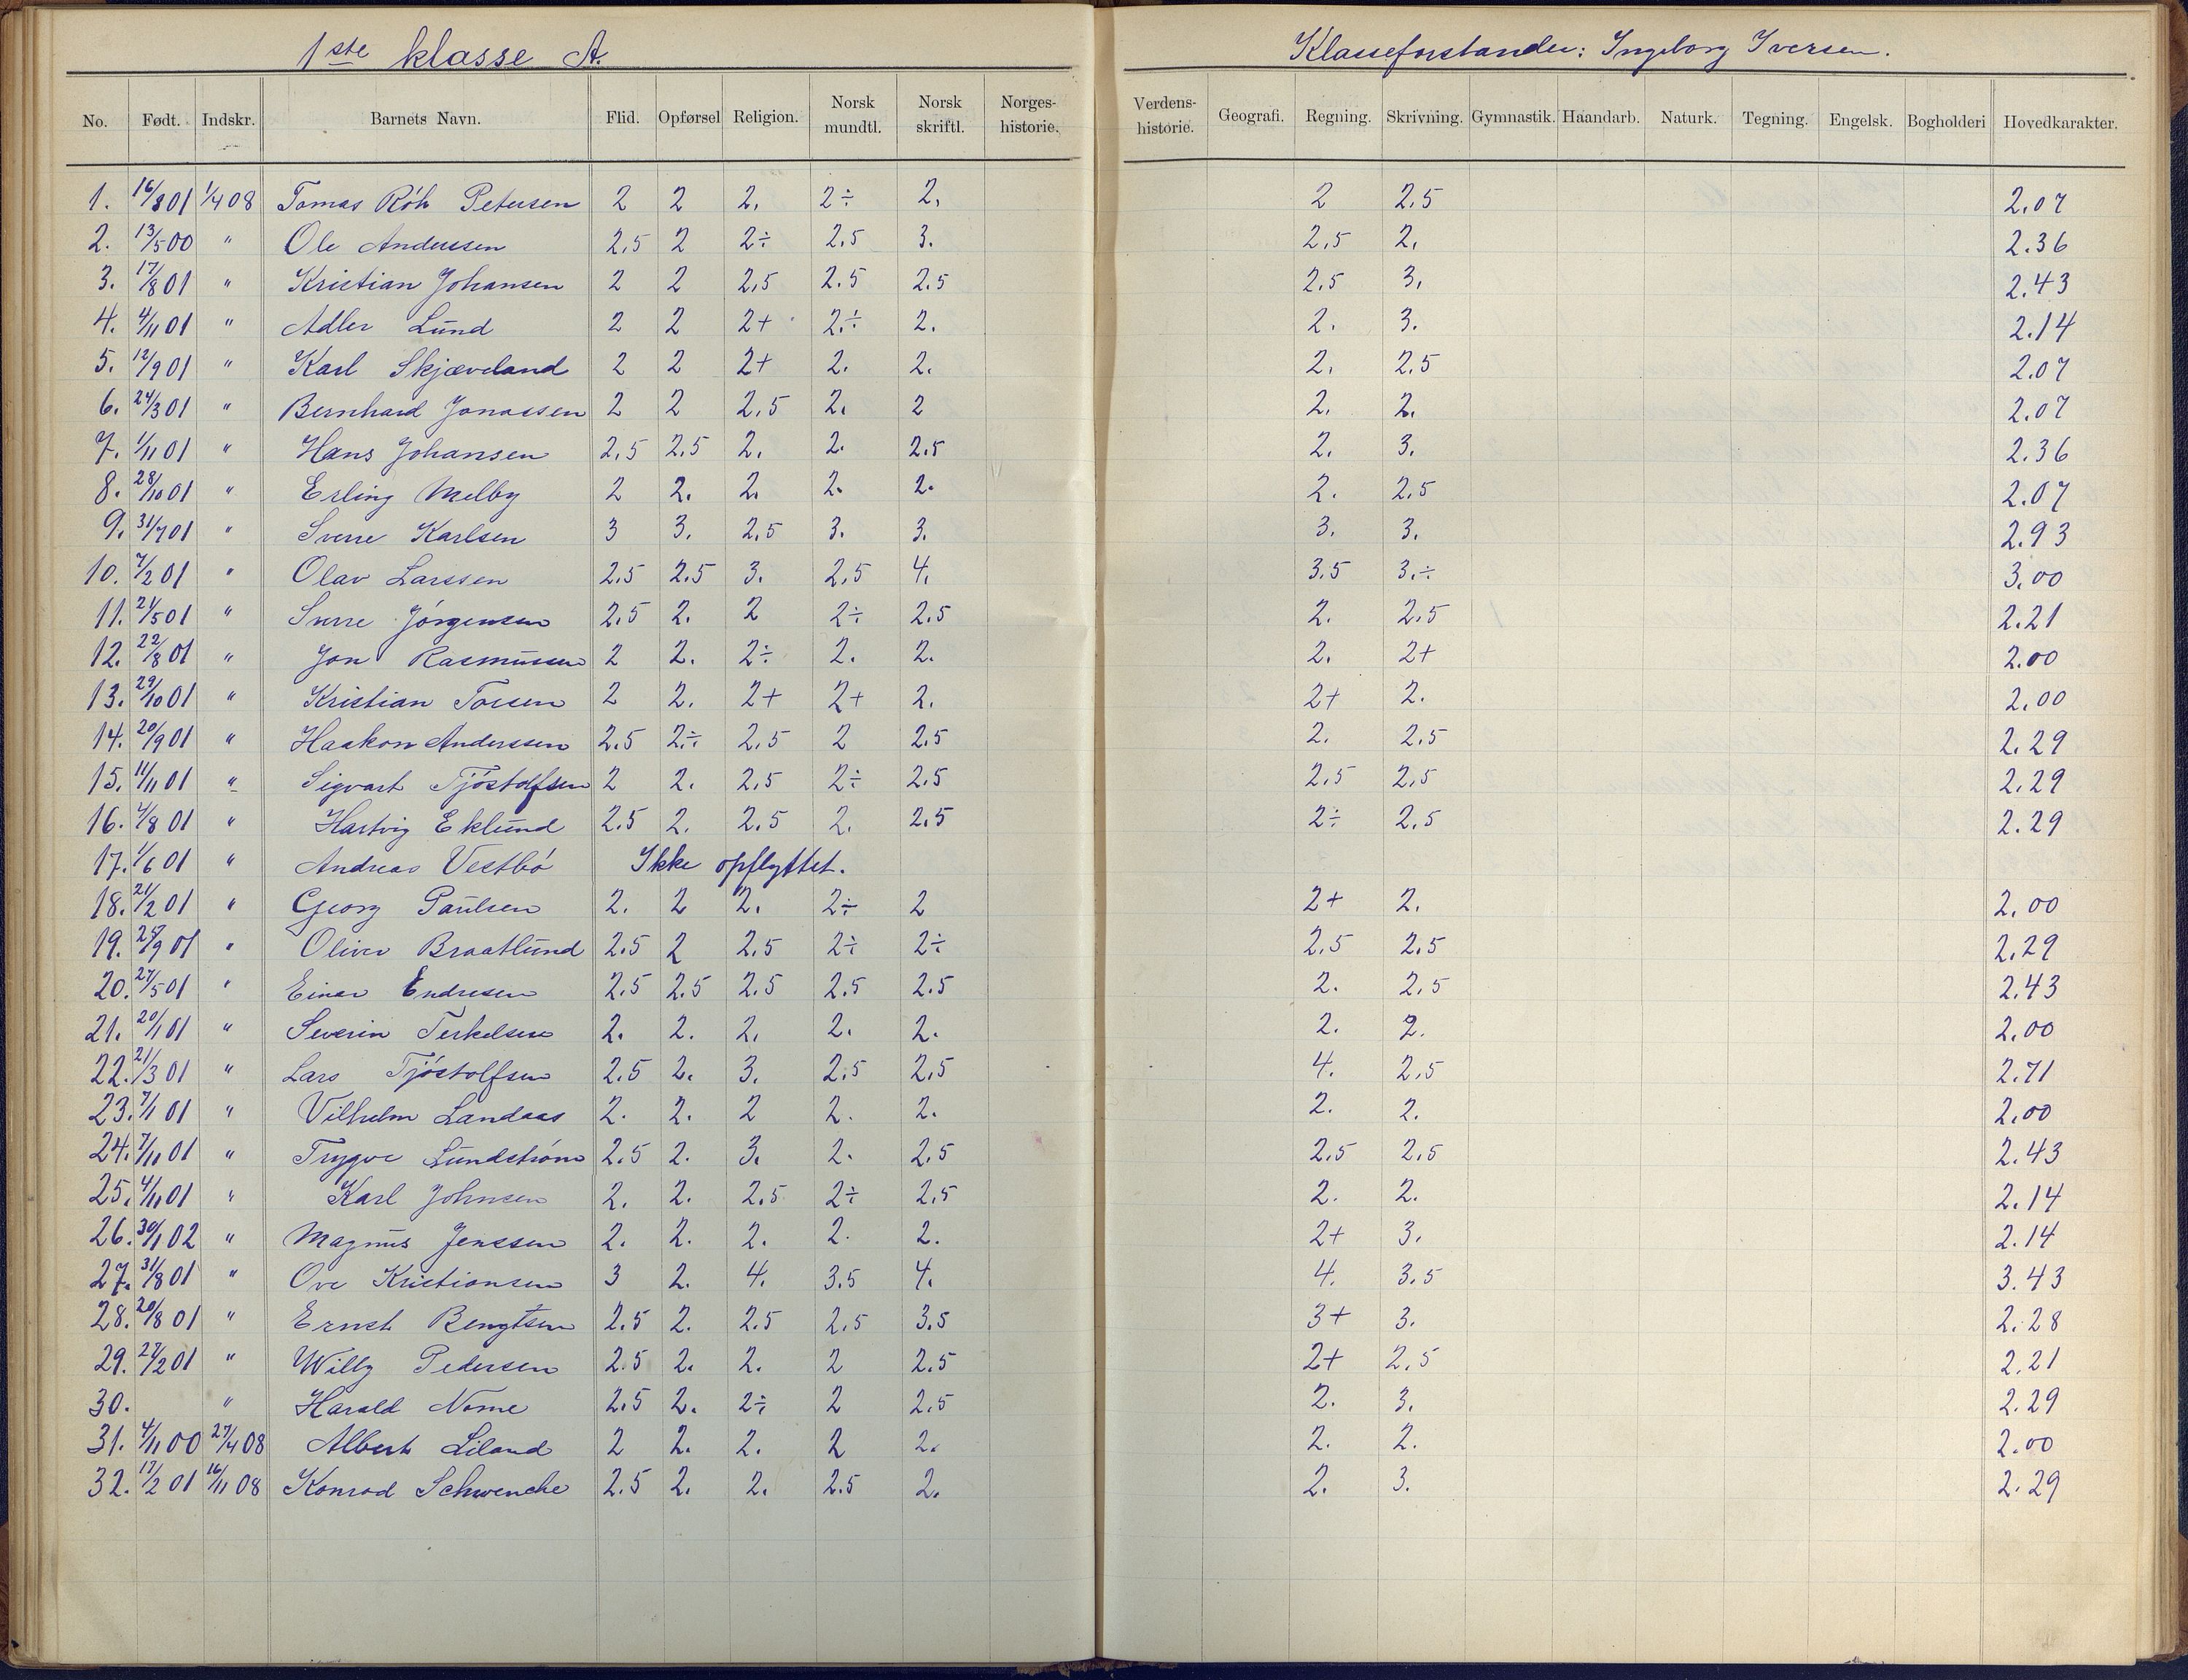 1ste klasse A.
Klasseforstander: Ingeborg Iversen.
No. Født. Indskr. Barnets Navn. Flid. Opførsel Religion. Norsk mundtl. Norsk skriftl. Norges-historie. Verdens-historie. Geografi. Regning. Skrivning. Gymnastik. Haandarb. Naturk. Tegning. Engelsk. Bogholderi Hovedkarakter.
1. 16/8 01 1/4 08 Tomas Röh Petersen 2 2 2. 2÷ 2. 2 2.5 2.07
2. 13/5 00 " Ole Anderssen 2,5 2 2÷ 2,5 3. 2,5 2. 2.36
3. 17/8 01 " Kristian Johansen 2 2 2,5 2.5 2.5 2,5 3. 2.43
4. 4/11 01 " Adler Lund 2 2 2+ 2.÷ 2. 2. 3. 2.14
5. 12/9 01 " Karl Skjæveland 2 2 2+ 2. 2. 2. 2.5 2.07
6. 24/3 01 " Bernhard Jonassen 2 2 2,5 2. 2 2. 2. 2.07
7. 1/11 01 " Hans Johansen 2,5 2.5 2. 2. 2.5 2. 3. 2.36
8. 28/10 01 " Erling Melby 2 2. 2. 2. 2. 2. 2.5 2.07
9. 31/7 01 " Sverre Karlsen 3 3. 2,5 3. 3. 3. 3. 2.93
10. 7/2 01 " Olav Larssen 2.5 2.5 3. 2,5 4. 3.5 3.÷ 3.00
11. 21/5 01 " Sverre Jörgensen 2.5 2. 2 2÷ 2.5 2. 2.5 2.21
12. 22/8 01 " Jon Rasmussen 2 2. 2÷ 2. 2. 2. 2+ 2.00
13. 29/10 01 " Kristian Torsen 2 2. 2+ 2+ 2. 2+ 2. 2.00
14. 20/9 01 " Haakon Anderssen 2.5 2.÷ 2.5 2 2.5 2. 2.5 2.29
15. 11/11 01 " Sigvart Tjöstolfsen 2 2. 2,5 2÷ 2.5 2.5 2.5 2.29
16. 4/8 01 " Hartvig Eklund 2.5 2. 2.5 2. 2.5 2÷ 2.5 2.29
17. 1/6 01 " Andreas Vestbö Ikke opflyttet.
18. 21/2 01 " Georg Paulsen 2. 2 2. 2÷ 2 2+ 2. 2.00
19. 25/9 01 " Oliver Braatlund 2.5 2 2.5 2÷ 2÷ 2.5 2.5 2.29
20. 27/5 01 " Einar Endresen 2.5 2.5 2.5 2.5 2.5 2. 2.5 2.43
21. 20/1 01 " Severin Terkelsen 2. 2. 2. 2. 2. 2. 2. 2.00
22. 21/3 01 " Lars Tjöstolfsen 2.5 2. 3. 2.5 2.5 4. 2.5 2.71
23. 7/1 01 " Vilhelm Landaas 2. 2. 2 2. 2. 2. 2. 2.00
24. 7/11 01 " Trygve Lundström 2.5 2. 3. 2. 2.5 2.5 2.5 2.43
25. 4/11 01 " Karl Johnsen 2. 2. 2.5 2÷ 2.5 2. 2. 2.14
26. 30/1 02 " Magnus Jenssen 2. 2. 2. 2. 2. 2+ 3. 2.14
27. 31/8 01 " Ove Kristiansen 3 2. 4. 3.5 4. 4. 3.5 3.43
28. 20/8 01 " Ernst Bengtsen 2.5 2. 2.5 2.5 3.5 3+ 3. 2.28
29. 27/2 01 " Willy Pedersen 2.5 2. 2. 2 2.5 2+ 2.5 2.21
30. " Harald Nome 2.5 2. 2÷ 2 2.5 2. 3. 2.29
31. 4/11 00 27/4 08 Albert Liland 2 2. 2. 2 2. 2. 2. 2.00
32. 17/2 01 16/11 08 Konrad Schwencke 2.5 2. 2. 2.5 2. 2. 3. 2.29